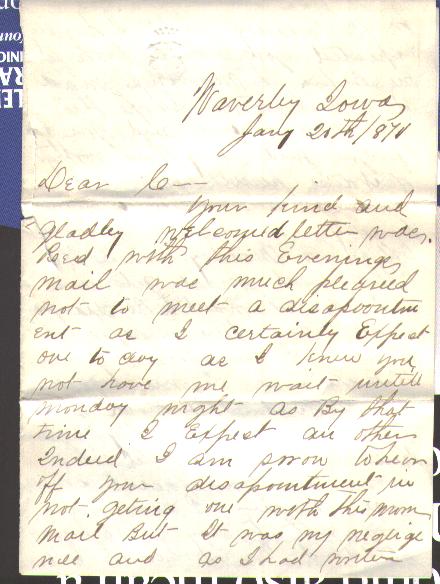 Waverly Iowa
Jany 20th /871
Dear C—
Your kind and
gladley welcomed letter was
Recd with this Evenings
mail was much pleased
not to meet a disapointm
ent as I certainly Expect
one to day as I knew you
not have me wait untill
monday night as By that
time I Expect an other
Indeed I am sorow to hear
off your disapointment in
not geting one with this morn
mail But It was my neglige
nce and as I had written